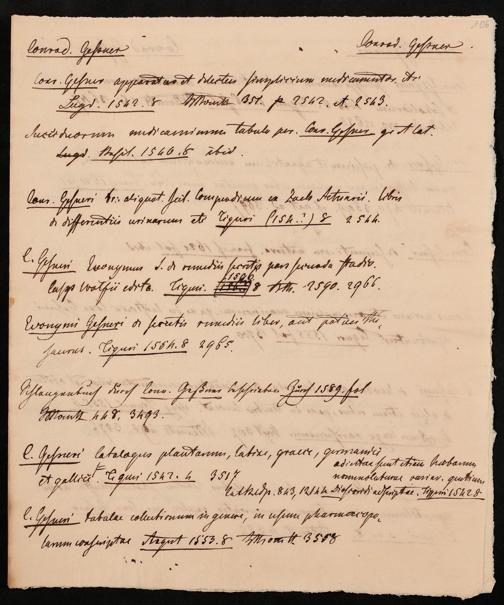 106
Conrad. Geßner Conrad. Geßner.
Conr. Gesner apparatus et delectus simplicium medicamentor. &c
Lugd. 1542. 8 351. p 2542. et. 2543.
Succiduorum medicaminum tabula per. Conr. Gesner gr & lat.
Lugd. Basil. 1540. 8 ibid.
Conr. Gesneri aliquot. scil. Compendium ex Zach Actuarii. libris
de differentiis urinarum etc Tiguri (154.?) 8 2544.
C. Gesneri Evonymus s. de remediis secretis pars secunda studio.
Casp. Wolfii edita. Tiguri. 8 2590. 2966.
Evonymi Gesneri de secretis remediis liber, aut potius The,
saurus. Tiguri 1554. 8 2965.
Schlangenbuch durch Conr. Geßner beschrieben Zürch 1589. fol
448. 3493.
C. Gesneri Catalogus plantarum, latine, graece, germanice,
et gallice Tiguri 1542. 4 3517
adiectae sunt etiam herbarum
nomenclaturae variar. gentium
Dioscoridi adscriptae. Tiguri 1542 8
C. Gesneri tabulae collectionum in genere, in usum pharmacopo,
larum conscriptae Argent 1553. 8 3508